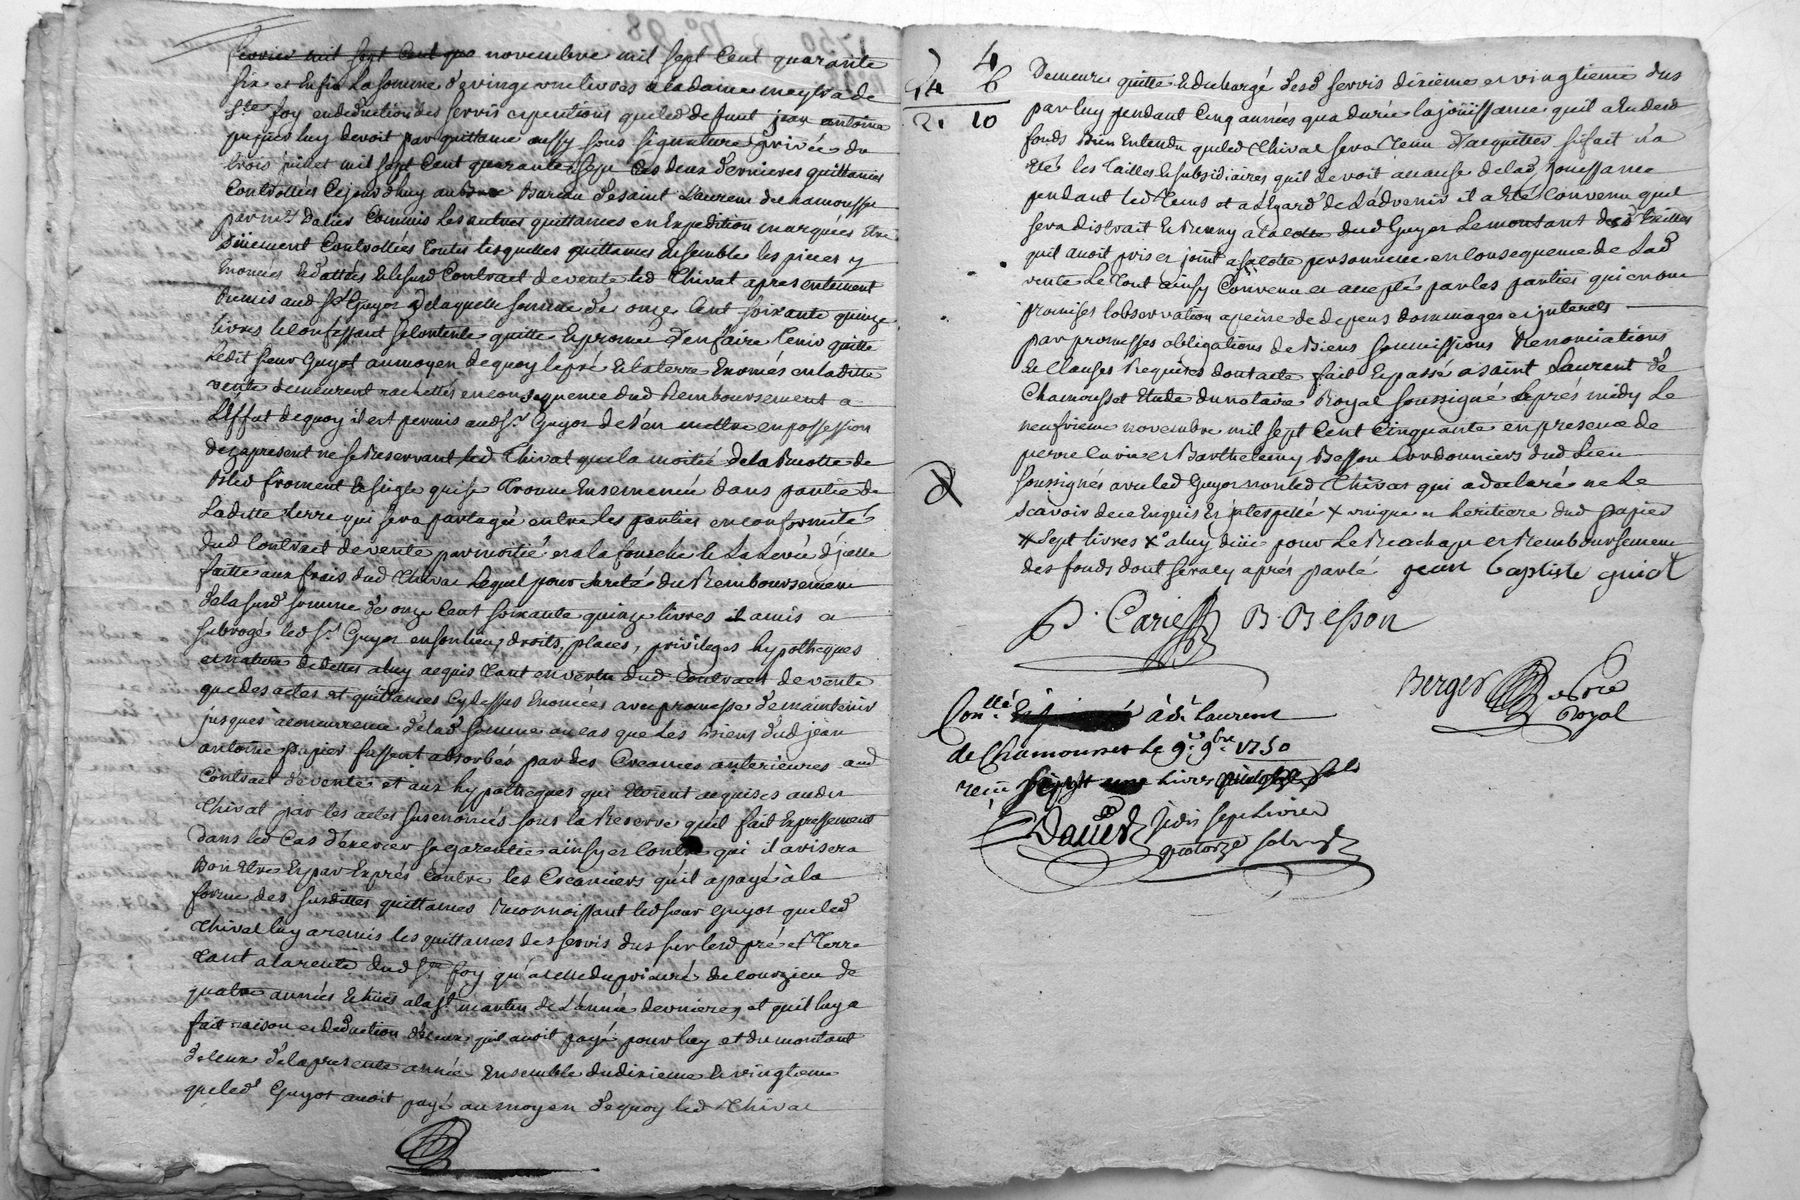 fevrier mil sept Cent qua novembre mil sept Cent quarante
six et Enfin La somme de vingt livres a la dame meyra de
Ste foy en deduction des servis et pentions que led deffunt jean antoine
papier luy devoit par quittance aussy sous signature privée du
trois juillet mil sept Cent quarante sept Ces deux dernieres quittances
Controllées Cejourdhuy au Bureau de saint Laurent de chamousset
par me Dalies Commis Les autres quittances en Expedition marquées Etre
duement Controllées toutes lesquelles quittances ensemble les pieces y
Enoncées Et dattées Et lesusd Contract de vente led Thivat a presentement
Remis aud sr Guyot de laquelle somme de onze Cent soixante quinze
livres le confessant se Contente quitte Et promet d'en faire tenir quitte
Ledit sieur Guyot au moyen de quoy le pré Et la terre Enoncés en laditte
vente demeurent rachettés en consequence dud Remboursement a
L'Effet de quoy il est permis aud sr Guyot de s'en mettre en possession
des apresent ne se Reservant led Thivat que la moitié de la Recolte de
Bled froment Et seigle qui se trouve Ensemencée dans partie de
Laditte terre qui sera partagée entre les parties en conformité
dud Contract de vente par moitié et a la fourche Et La Levée d'jcelle
faitte aux frais dud Thivat Lequel pour sureté du Remboursement
de la susd somme de onze Cent soixante quinze livres il a mis et
subrogé led sr Guyot en son lieu, droits, places, privileges hypotheques
et nature de dettes a luy acquis tant en vertu dud Contract de vente
que des actes et quittances Cydessus Enoncées avec promesse de maintenir
jusques a concurrence de lad somme au cas que Les Biens dud jean
antoine papier fussent absorbés par des Creances anterieures aud
Contract de vente et aux hypotheques qui Etoient acquises audit
Thivat par les actes susenoncés sous la Reserve qu'il fait Expressement
dans led Cas d'exercer sa garentie ainsy et Contre qui il avisera
Bon Etre Et par Exprés Contre les Creanciers qu'il a payé a la
forme des susdittes quittances Reconnoissant led sieur Guyot que led
Thivat luy a remis les quittances des servis dus sur lesd pré et terre
tant a la rente dud ste foy qu'a celle du prieuré de Courzieu de
quatre années Echues a la st martin de L'année derniere, et qu'il luy a
fait raison et deduction de ceux qu'il avoit payé pour luy et du montant
de ceux de la presente année Ensemble du dixieme Et vingtieme
que led Guyot avoit payé au moyen de quoy led Thivat
4
14 6
2. 10
Demeure quitte Et dechargé desd servis dixieme et vingtieme dus
par luy pendant Cinq années qu'a durée la joüissance qu'il a Eu desd
fonds Bien Entendu que led Thivat sera Tenu d'acquitter si fait n'a
Eté les Tailles Et subsidiaires qu'il devoit a cause de lad Joüissance
pendant led Tems et a L'Egard de L'advenir il a Eté Convenu que
sera distrait Et Remy a la Cotte dud Guyot Le montant desd Tailles
qu'il avoit pris et joint a sa cotte personnelle en consequence de Lad
vente Le tout ainsy Convenu et accepté par les parties qui en ont
promises l'observation a peine de depens dommages et jnterets
par promesses obligations de Biens soumissions Renonciations
Et Clauses Requises dont acte fait Et passé a saint Laurent de
Chamousset Etude du notaire Royal soussigné aprés midy Le
neufvieme novembre mil sept Cent Cinquante en presence de
pierre Carrier et Barthelemy Besson Cordonniers dud Lieu
soussignés avec led Guyot non led Thivat qui a declaré ne Le
scavoir de ce Enquis Et jnterpellé x unique et heritiere dud papier
# sept livres x a luy düe pour Le Rachapt et Remboursement
des fonds dont sera cy aprés parlé jean Baptiste guiot
P. Carier B. Besson
Berger nore
Royal
Conllé à st laurent
de Chamousset Le 9e 9bre 1750
reçu livres sols
Dalies Je dis sept Livres
quatorze sols